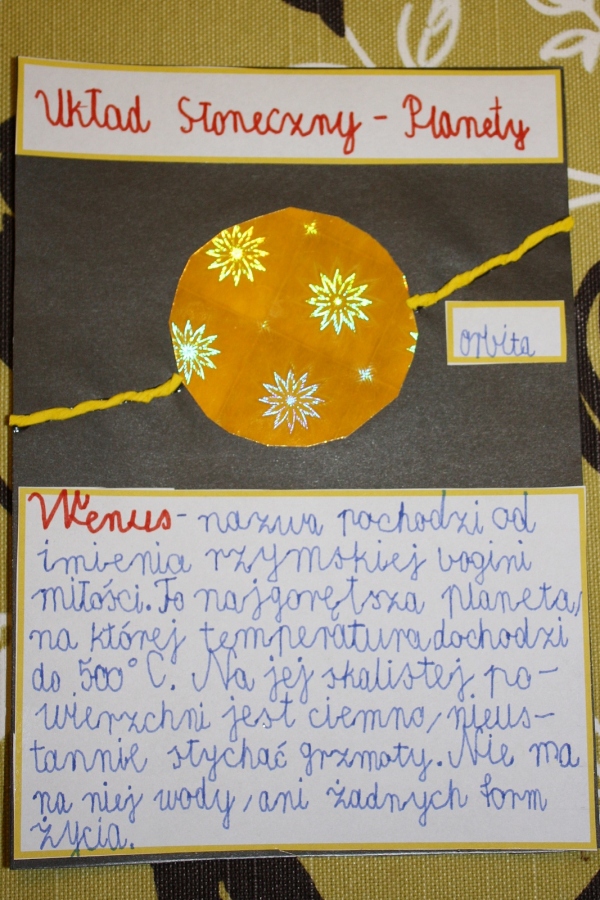 Układ Słoneczny - Planety
orbita
Wenus - nazwa pochodzi od
imienia rzymskiej bogini
miłości. To najgorętsza planeta,
na której temperatura dochodzi
do 500°C. Na jej skalistej po-
wierzchni jest ciemno, nieus-
tannie słychać grzmoty. Nie ma
na niej wody, ani żadnych form
życia.